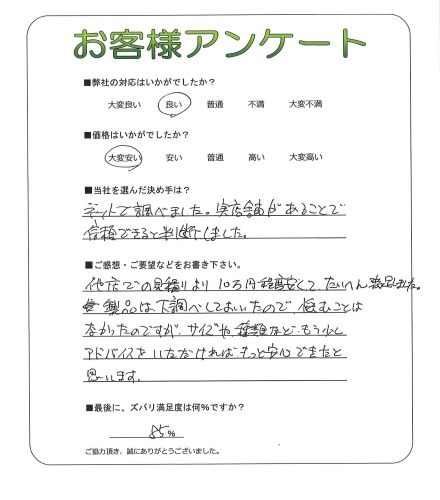 お客様アンケート
■弊社の対応はいかがでしたか？
大変良い 良い 普通 不満 大変不満
■価格はいかがでしたか？
大変安い 安い 普通 高い 大変高い
■当社を選んだ決め手は？
ネットで調べました。実店舗があることで
信頼できると判断しました。
■ご感想・ご要望などをお書き下さい。
他店での見積りより10万円程度安くて、たいへん満足しました。
製品は下調べしておいたので 悩むことは
なかったのですが、サイズや種類など、もう少し
アドバイスをいただければもっと安心できたと
思います。
■最後に、ズバリ満足度は何％ですか？
85％
ご協力頂き、誠にありがとうございました。